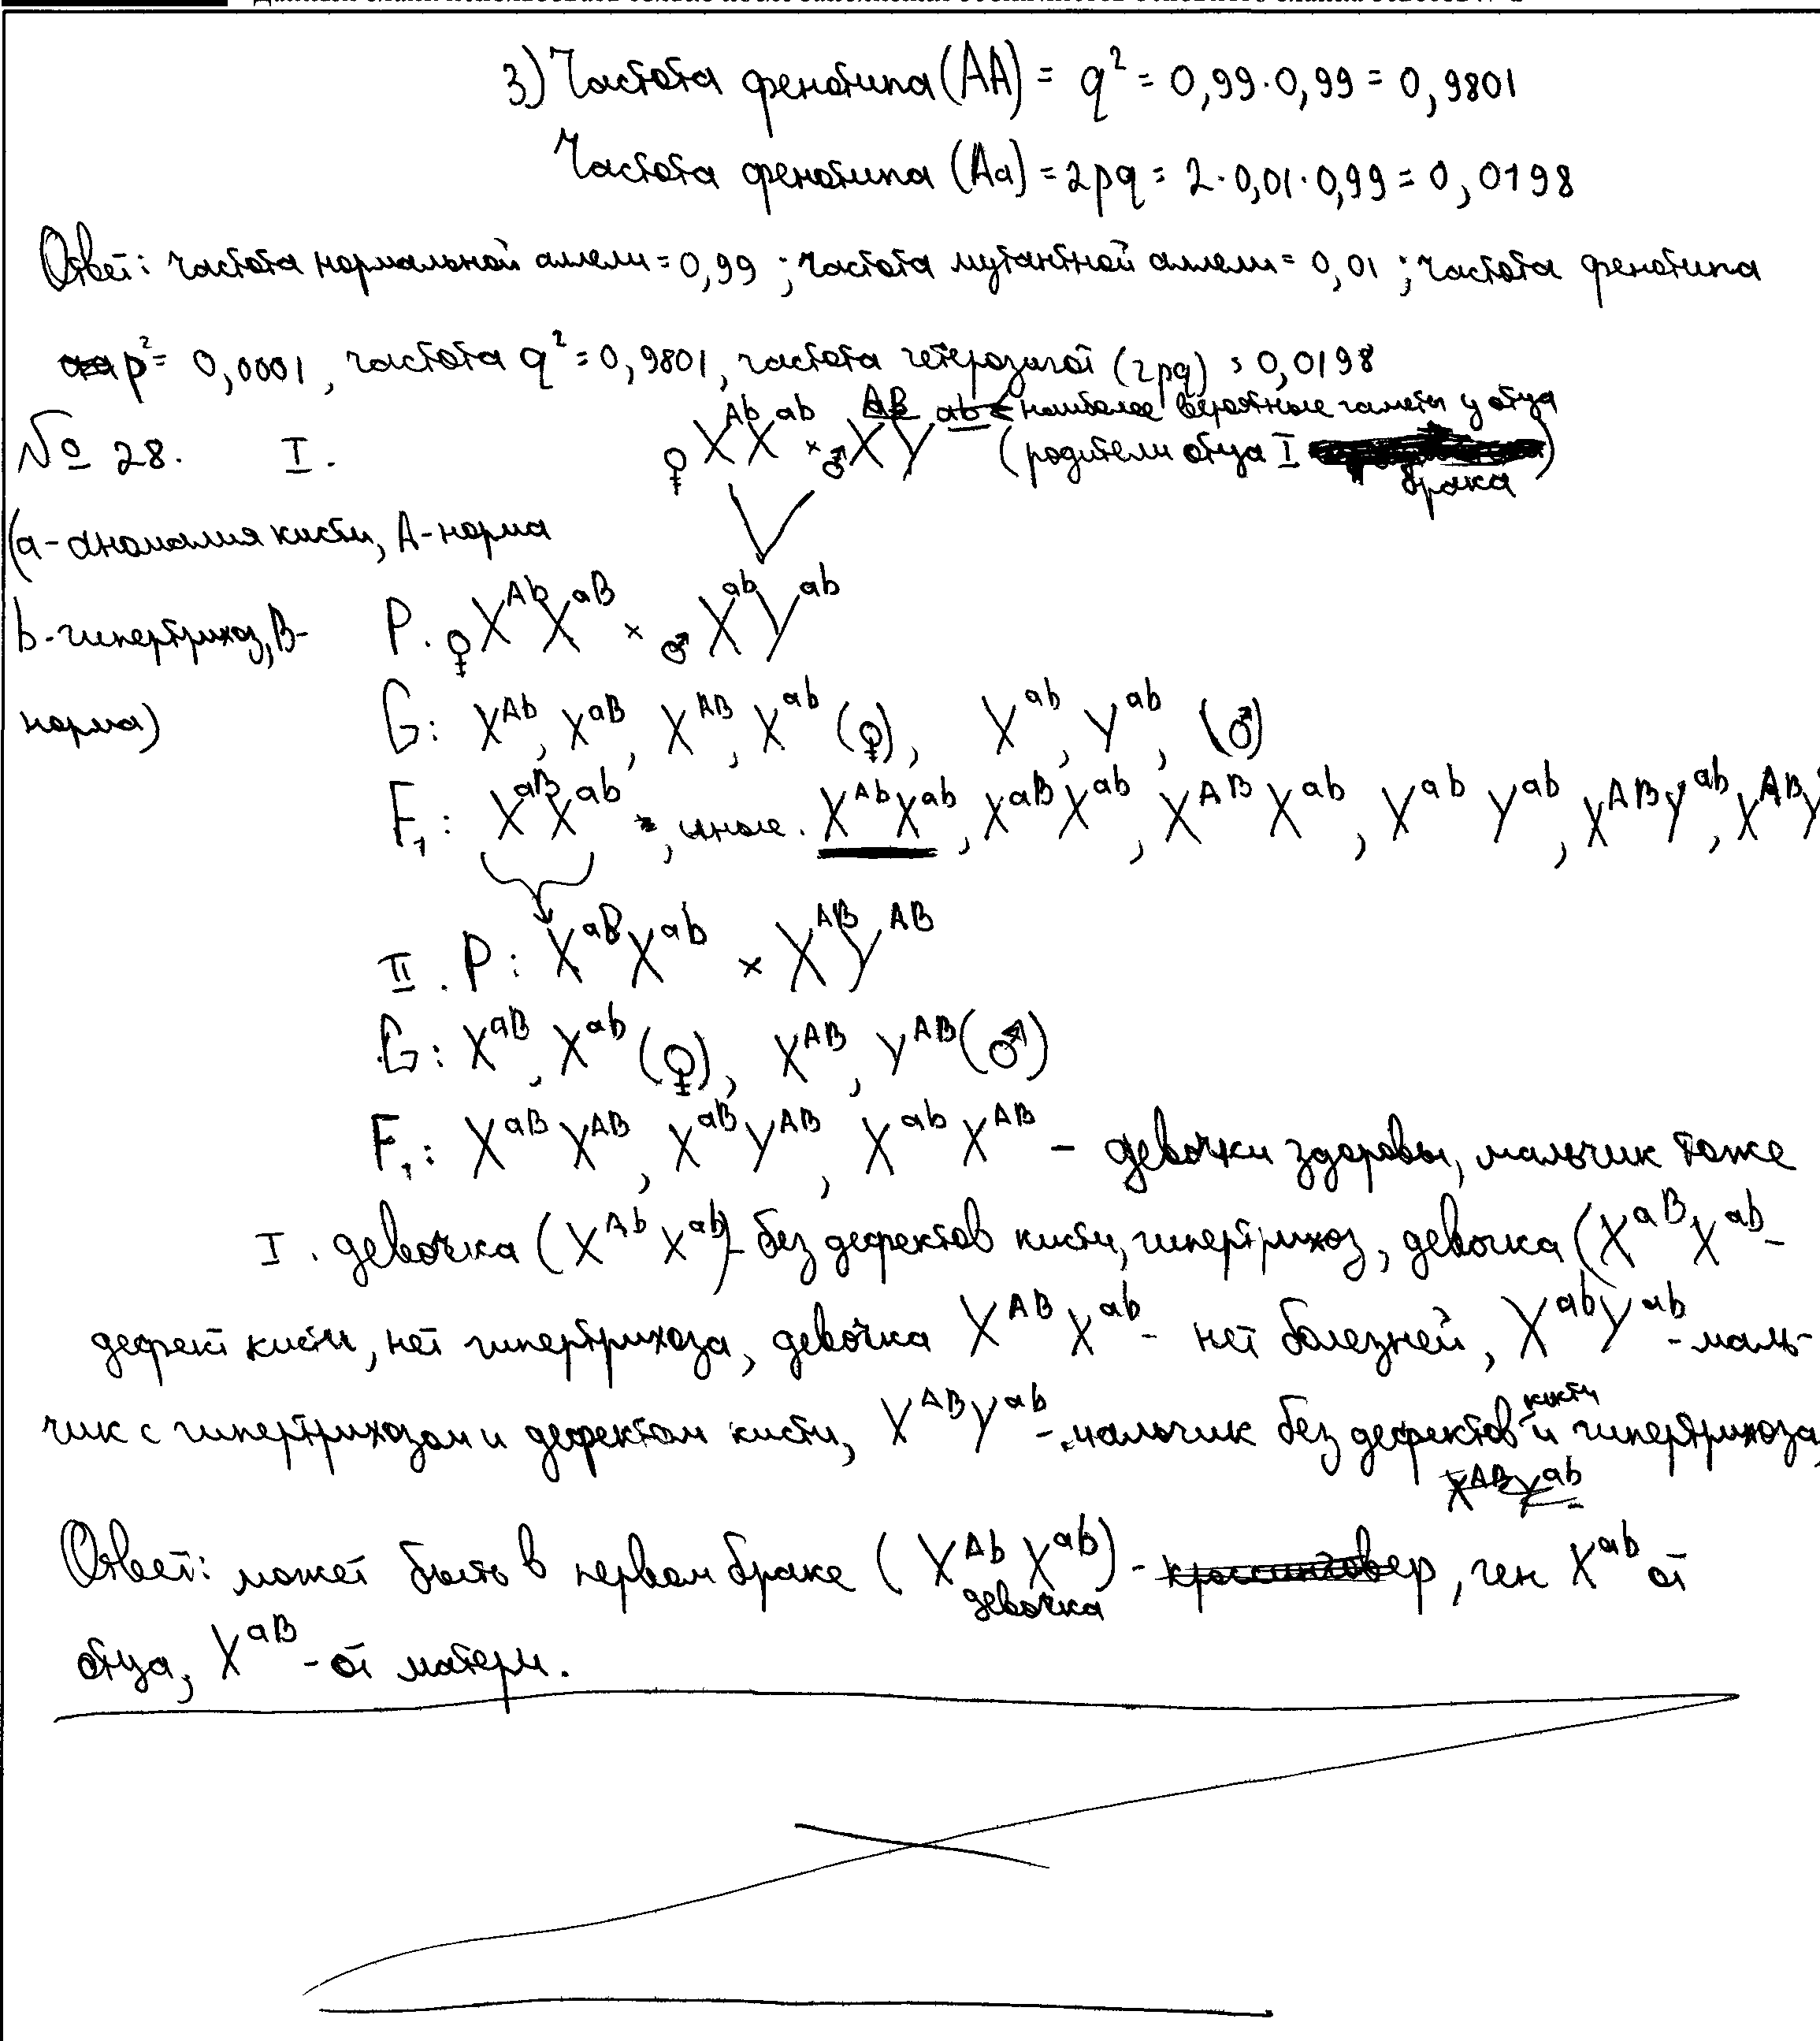 3) Частота фенотипа (AA) = q² = 0,99·0,99 = 0,9801
Частота фенотипа (Aa) = 2pq = 2·0,01·0,99 = 0,0198
Ответ: частота нормальной аллели = 0,99 ; частота мутантной аллели = 0,01 ; частота фенотипа
p² = 0,0001, частота q² = 0,9801, частота гетерозигот (2pq) = 0,0198
№ 28. I. ♀ X^Ab X^ab × ♂ X^AB Y^ab ← наиболее вероятные гаметы у отца
(родители отца I брака)
(a - аномалия кисти, A - норма
b - гипертрихоз, B - P. ♀ X^Ab X^aB × ♂ X^ab Y^ab
норма) G: X^Ab, X^aB, X^AB, X^ab (♀), X^ab, Y^ab, (♂)
F₁: X^aB X^ab, иные. X^Ab X^ab, X^aB X^ab, X^AB X^ab, X^ab Y^ab, X^AB Y^ab, X^AB Y
II. P: X^aB X^ab × X^AB Y^AB
G: X^aB, X^ab (♀), X^AB, Y^AB (♂)
F₁: X^aB X^AB, X^aB Y^AB, X^ab X^AB - девочки здоровы, мальчик тоже
I. девочка (X^Ab X^ab) - без дефектов кисти, гипертрихоз, девочка (X^aB X^ab -
дефект кисти, нет гипертрихоза, девочка X^AB X^ab - нет болезней, X^ab Y^ab - маль-
чик с гипертрихозом и дефектом кисти, X^AB Y^ab - мальчик без дефектов кисти и гипертрихоза,
X^AB Y^ab -
Ответ: может быть в первом браке (X^Ab X^ab) - кроссинговер, ген X^ab от
девочка
отца, X^aB - от матери.